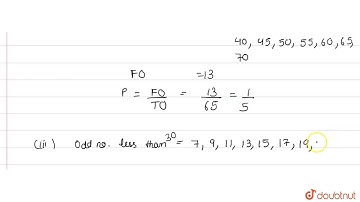 40, 45, 50, 55, 60, 65,
70
FO = 13
P = FO/TO = 13/65 = 1/5
(iii) Odd no. less than 30 = 7, 9, 11, 13, 15, 17, 19,
doubtnut